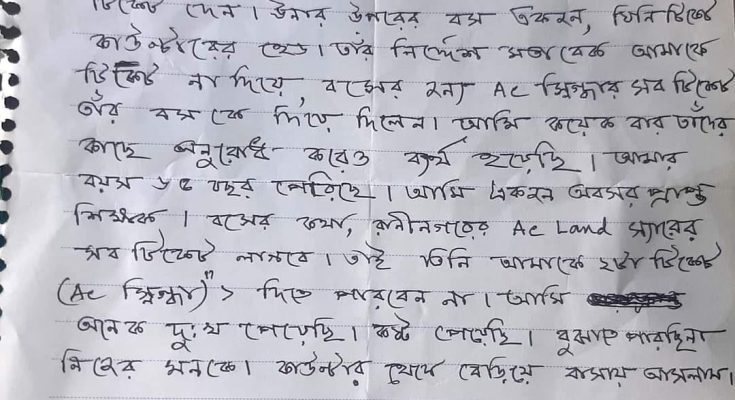 টিকেট দেন। উনার উপরের বস একজন, যিনি টিকেট
কাউন্টারের হেড। তাঁর নির্দেশ মতাবেক আমাকে
টিকেট না দিয়ে, বসের জন্য AC স্নিগ্ধার সব টিকেট
তাঁর বস কে দিয়ে দিলেন। আমি কয়েক বার তাঁদের
কাছে অনুরোধ করেও ব্যর্থ হয়েছি। আমার
বয়স ৬৫ বছর পেরিছে। আমি একজন অবসর প্রাপ্ত
শিক্ষক। বসের কথা, রানীনগরের AC Land স্যারের
সব টিকেট লাগবে। তাই তিনি আমাকে ২টা টিকেট
(AC স্নিগ্ধা) দিতে পারবেন না। আমি
অনেক দুঃখ পেয়েছি। কষ্ট পেয়েছি। বুঝাতে পারছিনা
নিজের মনকে। কাউন্টার থেকে বেড়িয়ে বাসায় আসলাম।